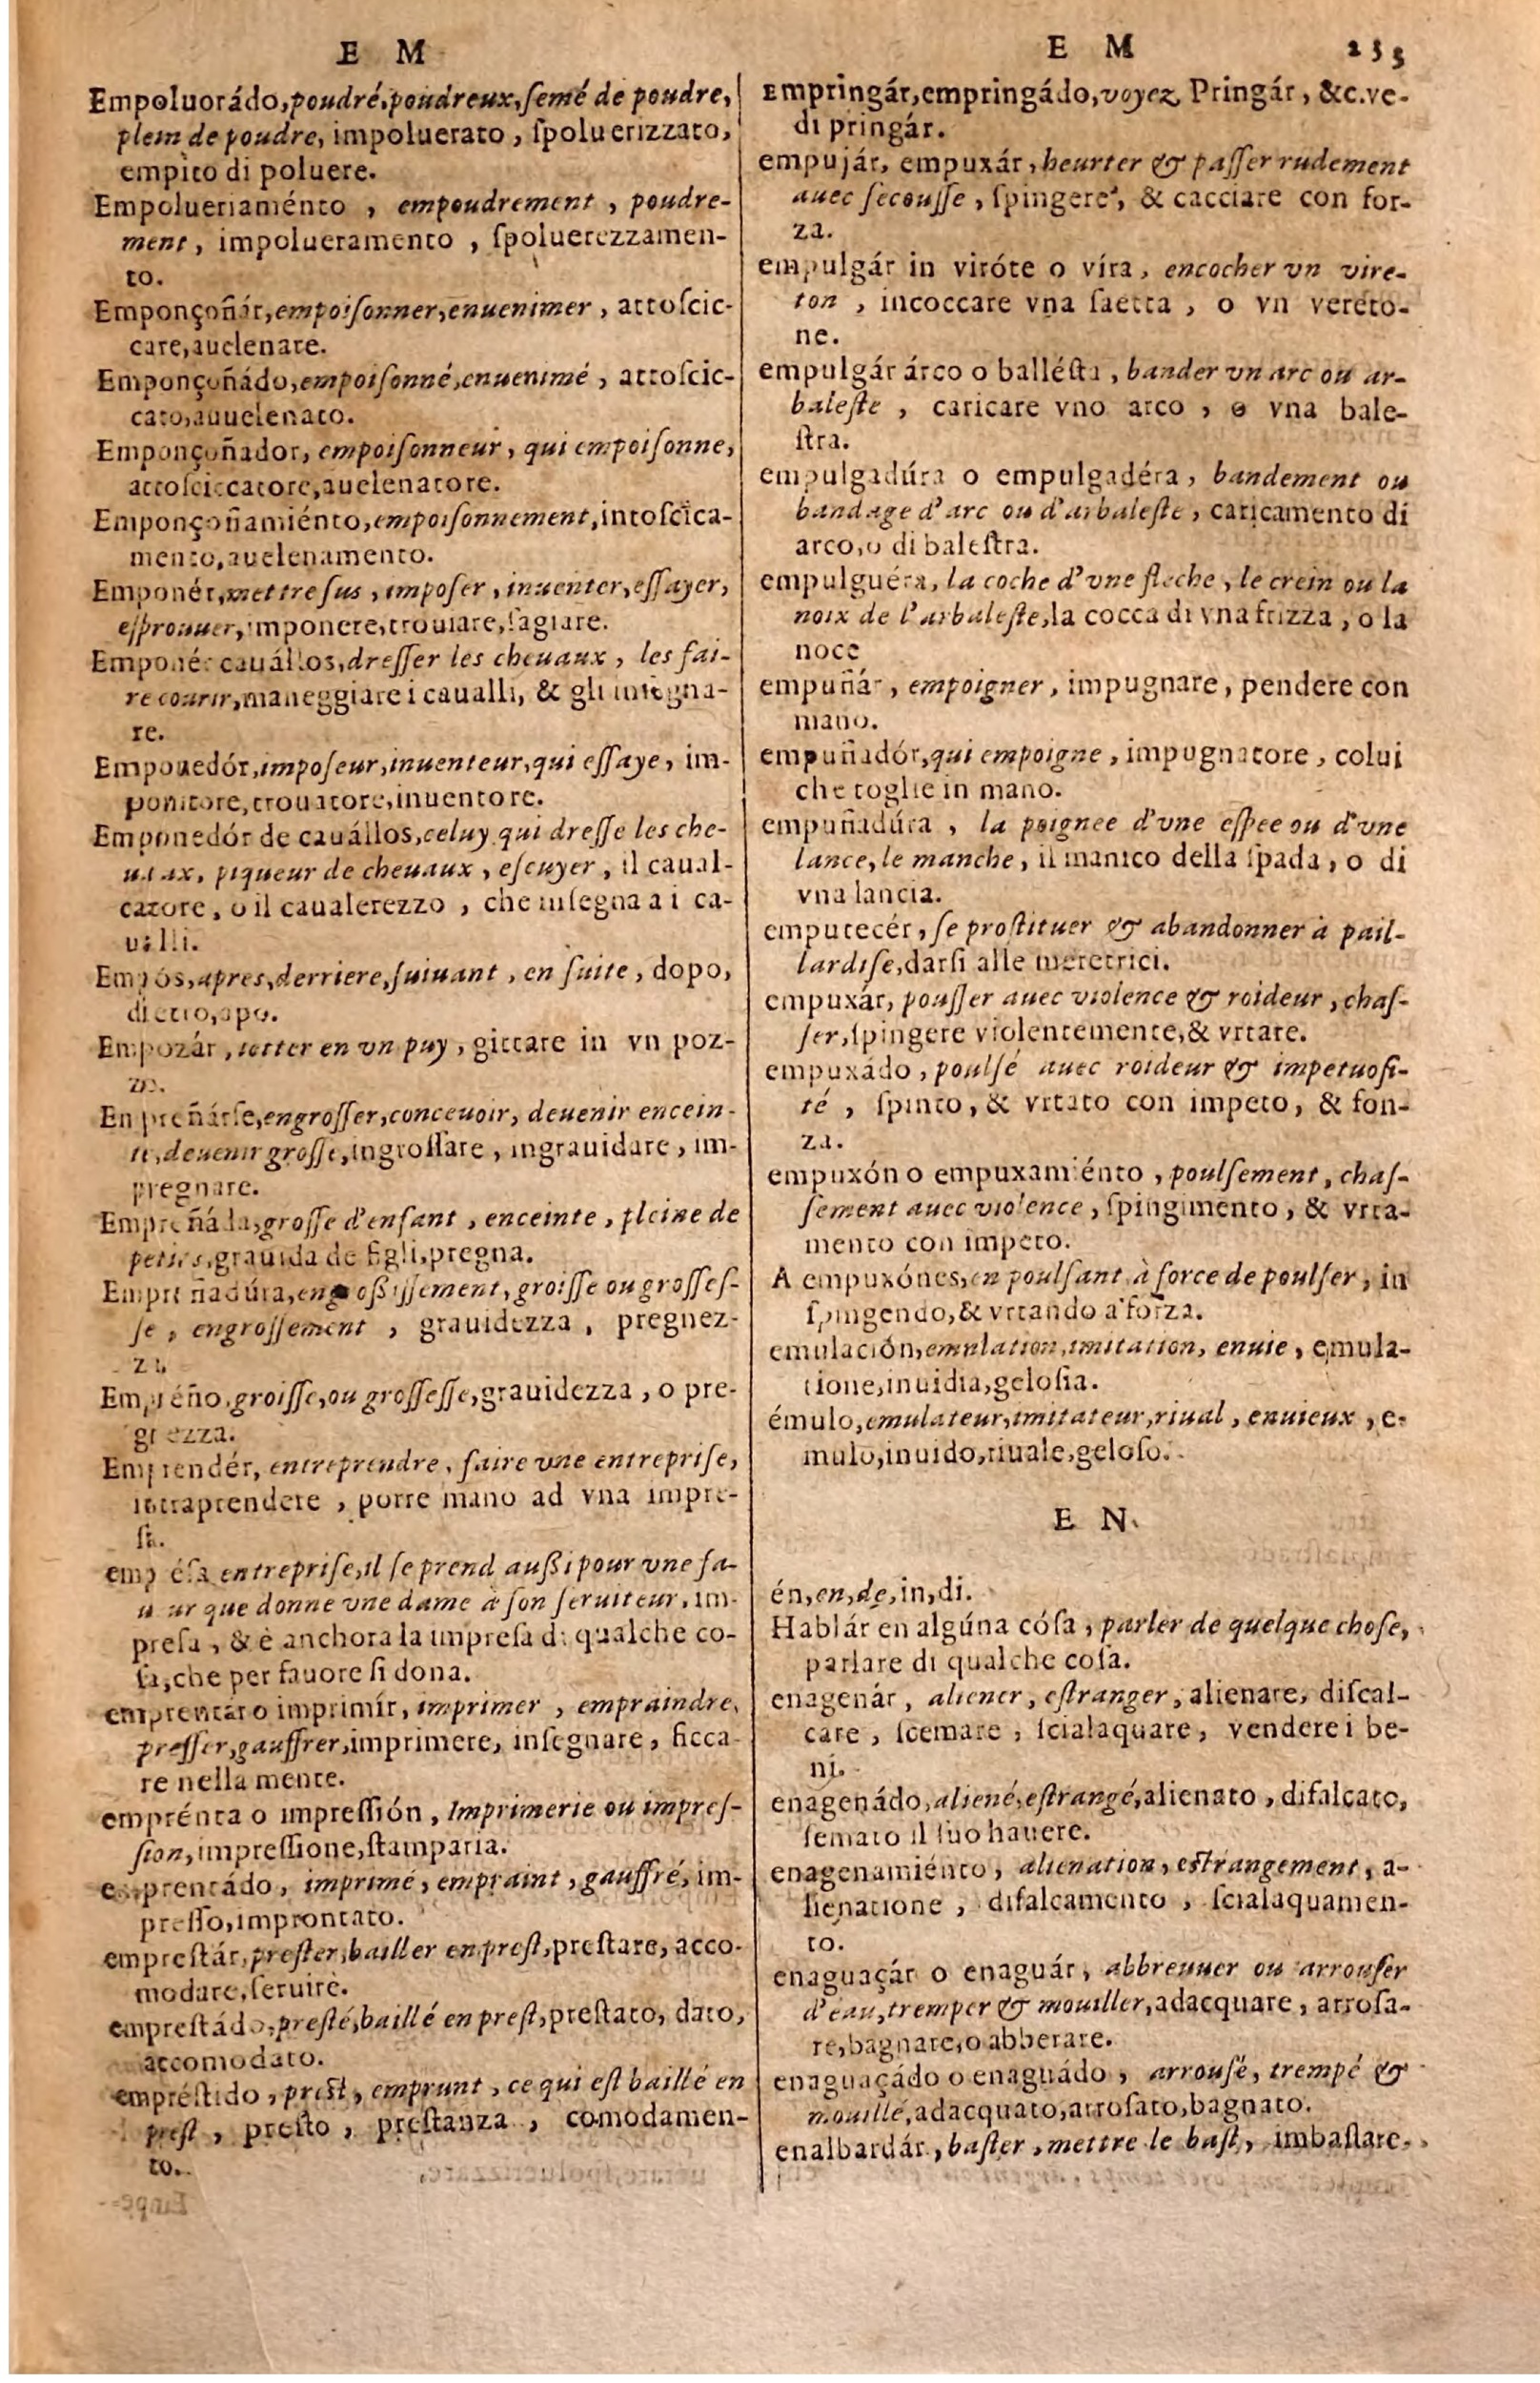 E M
Empoluorádo, poudré, poudreux, ſemé de poudre,
plein de poudre, impoluerato, ſpoluerizzato,
empito di poluere.
Empolueriaménto, empoudrement, poudre-
ment, impolueramento, ſpoluerezzamen-
to.
Emponçoñár, empoiſonner, enuenimer, attoſcic-
care, auelenare.
Emponçoñádo, empoiſonné, enuenimé, attoſcic-
cato, auuelenato.
Emponçoñador, empoiſonneur, qui empoiſonne,
attoſciccatore, auelenatore.
Emponçoñamiénto, empoiſonnement, intoſcica-
mento, auelenamento.
Emponér, mettre ſus, impoſer, inuenter, eſſayer,
eſprouuer, imponere, trouiare, ſagiare.
Emponér cauállos, dreſſer les cheuaux, les fai-
re courir, maneggiare i caualli, & gli inſegna-
re.
Emponedór, impoſeur, inuenteur, qui eſſaye, im-
ponitore, trouatore, inuentore.
Emponedór de cauállos, celuy qui dreſſe les che-
uaux, piqueur de cheuaux, eſcuyer, il caual-
catore, o il caualerezzo, che inſegna a i ca-
ualli.
Empós, apres, derriere, ſuiuant, en ſuite, dopo,
dietro, apo.
Empozár, ietter en vn puy, gittare in vn poz-
zo.
Enpreñárſe, engroſſer, conceuoir, deuenir encein-
te, deuenir groſſe, ingroſſare, ingrauidare, im-
pregnare.
Empreñáda, groſſe d'enfant, enceinte, pleine de
petits, grauida de figli, pregna.
Empreñadúra, engroßiſſement, groiſſe ou groſſeſ-
ſe, engroſſement, grauidezza, pregnez-
za.
Empréño, groiſſe, ou groſſeſſe, grauidezza, o pre-
gnezza.
Emprendér, entreprendre, faire vne entrepriſe,
intraprendere, porre mano ad vna impre-
ſa.
empréſa entrepriſe, il ſe prend außi pour vne fa-
ueur que donne vne dame à ſon ſeruiteur, im-
preſa, & è anchora la impreſa di qualche co-
ſa, che per fauore ſi dona.
emprentár o imprimír, imprimer, empraindre,
preſſer, gauffrer, imprimere, inſegnare, ficca-
re nella mente.
emprénta o impreſſión, Imprimerie ou impreſ-
ſion, impreſſione, ſtamparia.
emprentádo, imprimé, empraint, gauffré, im-
preſſo, improntato.
empreſtár, preſter, bailler en preſt, preſtare, acco-
modare, ſeruire.
empreſtádo, preſté, baillé en preſt, preſtato, dato,
accomodato.
empréſtido, preſt, emprunt, ce qui eſt baillé en
preſt, preſto, preſtanza, comodamen-
to.
E M 235
Empringár, empringádo, voyez Pringár, &c. ve-
di pringár.
empujár, empuxár, heurter & paſſer rudement
auec ſecouſſe, ſpingere, & cacciare con for-
za.
empulgár in viróte o víra, encocher vn vire-
ton, incoccare vna ſaetta, o vn vereto-
ne.
empulgár árco o balléſta, bander vn arc ou ar-
baleſte, caricare vno arco, o vna bale-
ſtra.
empulgadúra o empulgadéra, bandement ou
bandage d'arc ou d'arbaleſte, caricamento di
arco, o di baleſtra.
empulguéra, la coche d'vne fleche, le crein ou la
noix de l'arbaleſte, la cocca di vna frizza, o la
noce
empuñár, empoigner, impugnare, pendere con
mano.
empuñadór, qui empoigne, impugnatore, colui
che toglie in mano.
empuñadúra, la poignee d'vne eſpee ou d'vne
lance, le manche, il manico della ſpada, o di
vna lancia.
emputecér, ſe proſtituer & abandonner à pail-
lardiſe, darſi alle meretrici.
empuxár, pouſſer auec violence & roideur, chaſ-
ſer, ſpingere violentemente, & vrtare.
empuxádo, poulſé auec roideur & impetuoſi-
té, ſpinto, & vrtato con impeto, & fon-
za.
empuxón o empuxamiénto, poulſement, chaſ-
ſement auec violence, ſpingimento, & vrta-
mento con impeto.
A empuxónes, en poulſant, à force de poulſer, in
ſpingendo, & vrtando a forza.
emulación, emulation, imitation, enuie, emula-
tione, inuidia, geloſia.
émulo, emulateur, imitateur, riual, enuieux, e-
mulo, inuido, riuale, geloſo.
E N
én, en, de, in, di.
Hablár en algúna cóſa, parler de quelque choſe,
parlare di qualche coſa.
enagenár, aliener, eſtranger, alienare, difcal-
care, ſcemare, ſcialaquare, vendere i be-
ni.
enagenádo, aliené, eſtrangé, alienato, difalcato,
ſemato il ſuo hauere.
enagenamiénto, alienation, eſtrangement, a-
lienatione, difalcamento, ſcialaquamen-
to.
enaguaçár o enaguár, abbreuuer ou arrouſer
d'eau, tremper & mouiller, adacquare, arroſa-
re, bagnare, o abberare.
enaguaçádo o enaguádo, arrouſé, trempé &
mouillé, adacquato, arroſato, bagnato.
enalbardár, baſter, mettre le baſt, imbaſtare.